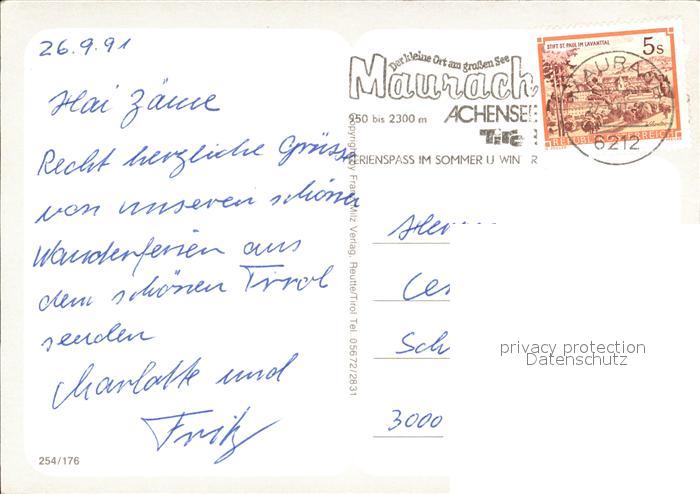 26.9.91
Hai Zäme
Recht herzliche Grüsse
von unseren schönen
Wanderferien aus
dem schönen Tirol
senden
Charlotte und
Fritz
254/176
Copyright by Franz Milz Verlag, Reutte/Tirol Tel. 05672/2831
Der kleine Ort am großen See
Maurach
ACHENSEE
950 bis 2300 m
Tirol
FERIENSPASS IM SOMMER U WINTER
STIFT ST. PAUL IM LAVANTTAL
5s
REPUBLIK ÖSTERREICH
MAURACH
6212
Herr
Ce
Sch
3000
privacy protection
Datenschutz